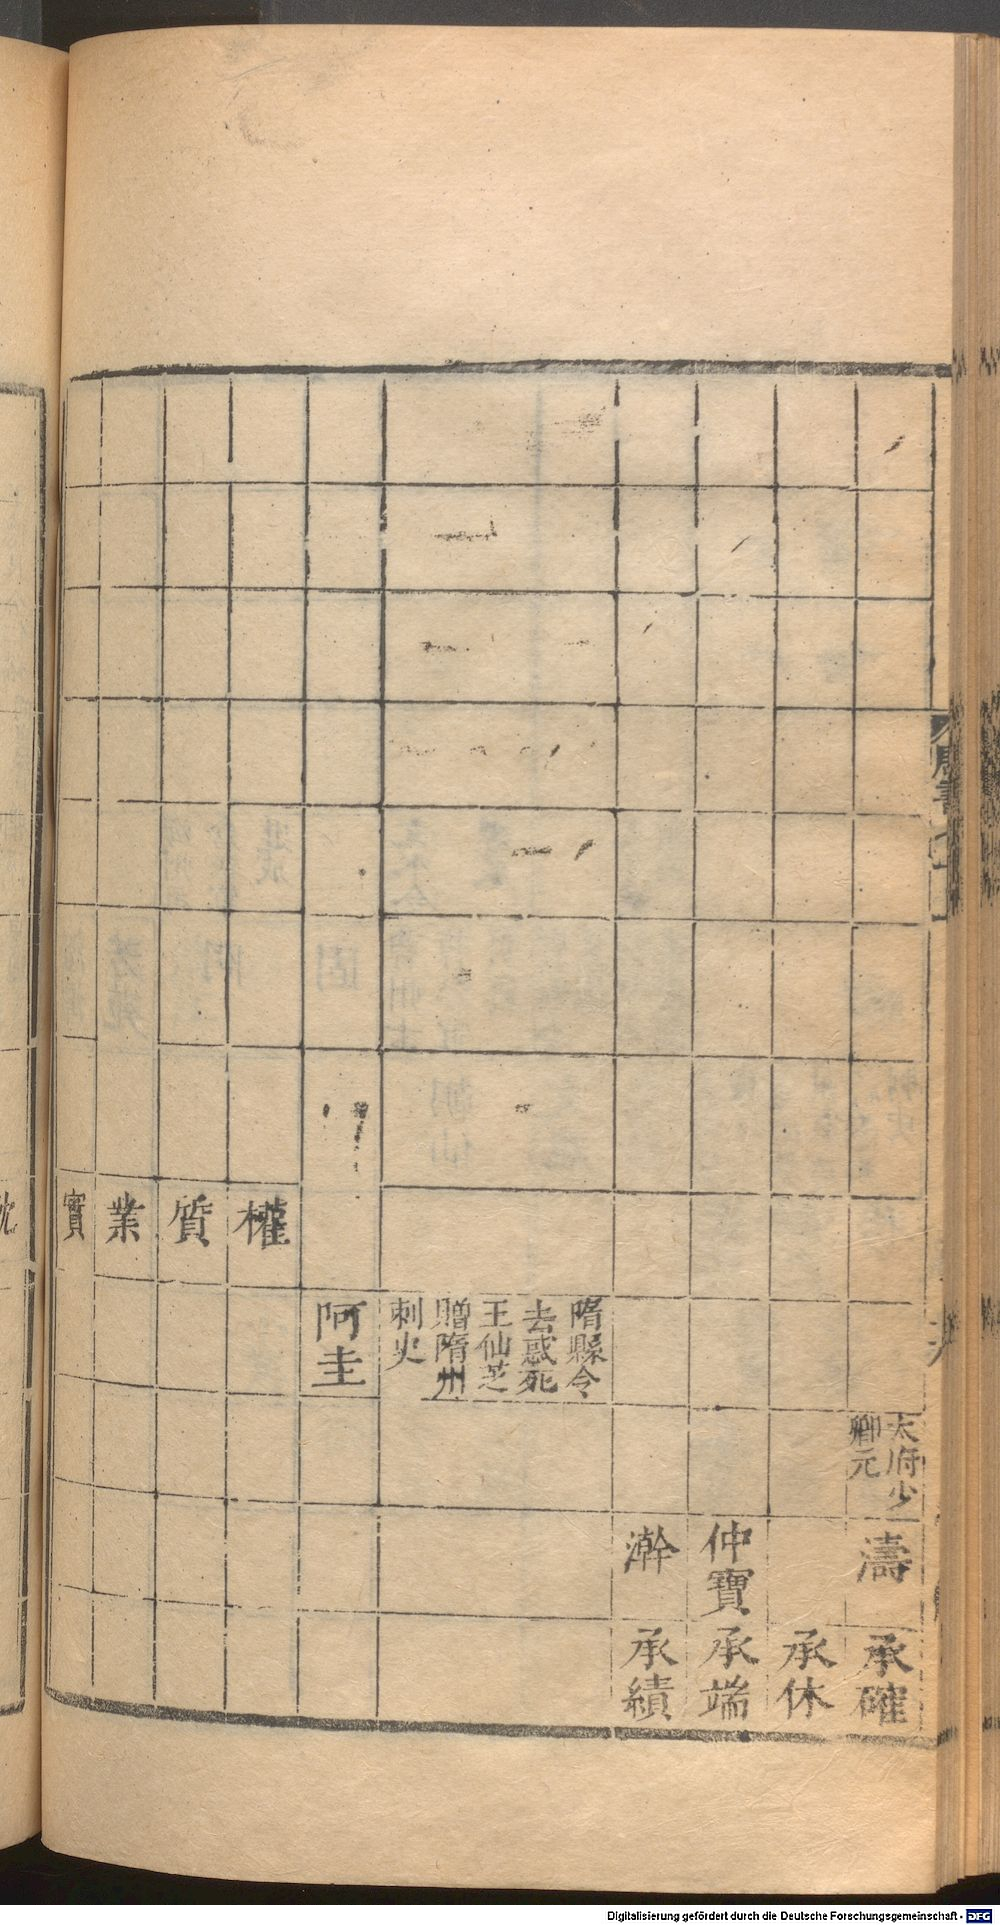 太府少
卿元
濤
承確
承休
仲寶
承端
澣
承績
隋縣令
去惑死
王仙芝
贈隋州
刺史
阿圭
權
質
業
實
Digitalisierung gefördert durch die Deutsche Forschungsgemeinschaft - DFG